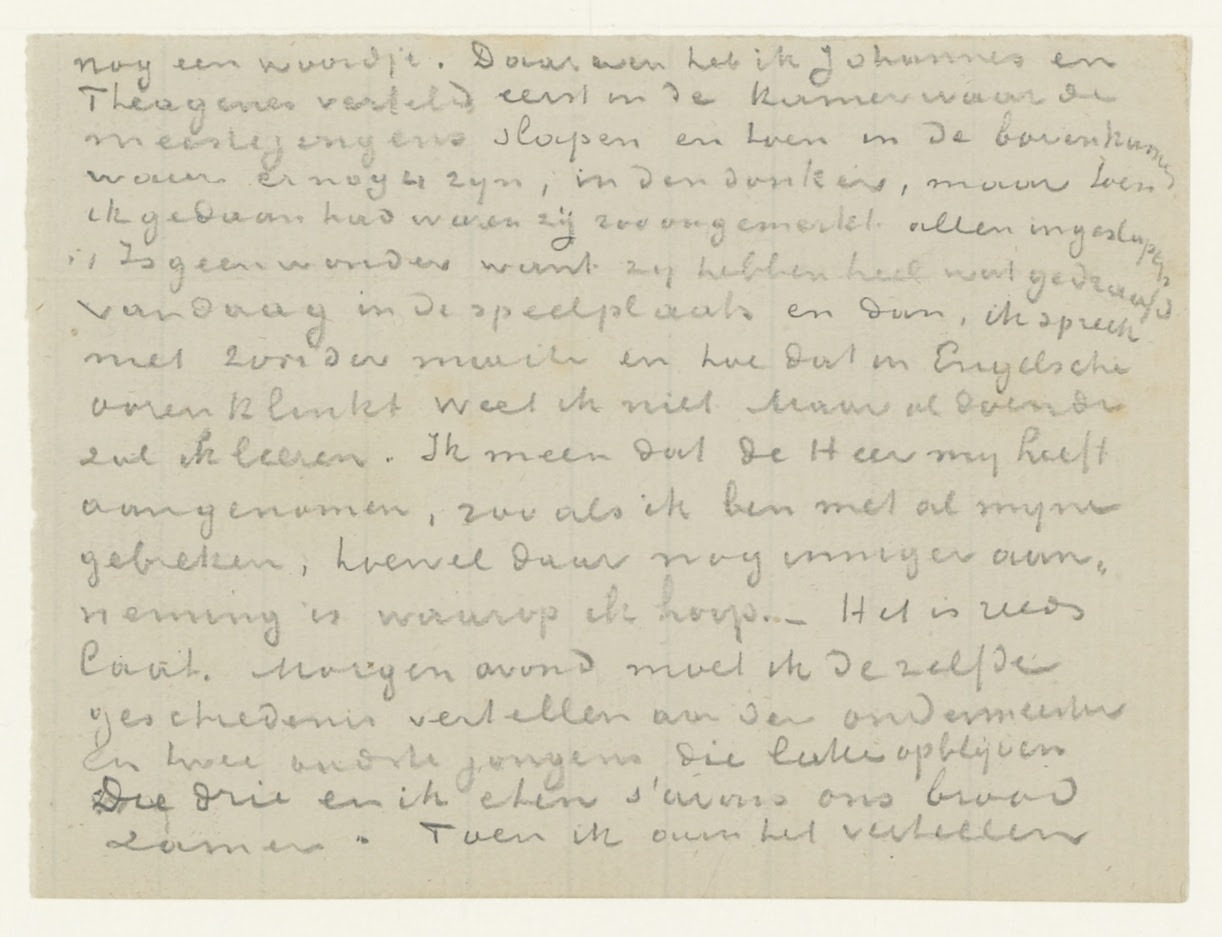 nog een woordje. Daareven heb ik Johannes en
Theagenes verteld eerst in de kamer waar de
meeste jongens slapen en toen in de bovenkamer
waar er nog 4 zyn, in den donker, maar toen
ik gedaan had waren zij zoo ongemerkt allen ingeslapen
't Is geen wonder want zy hebben heel wat gedraafd
vandaag in de speelplaats en dan, ik spreek
niet zonder moeite en hoe dat in Engelsche
ooren klinkt weet ik niet Maar al doende
zal ik leeren. Ik meen dat de Heer my heeft
aangenomen, zoo als ik ben met al myne
gebreken, hoewel daar nog inniger aan,,
neming is waarop ik hoop.- Het is reeds
laat. Morgen avond moet ik dezelfde
geschiedenis vertellen aan den ondermeester
En twee oudste jongens die later opblijven
Die drie en ik eten s'avons ons brood
zamen. Toen ik aan het vertellen